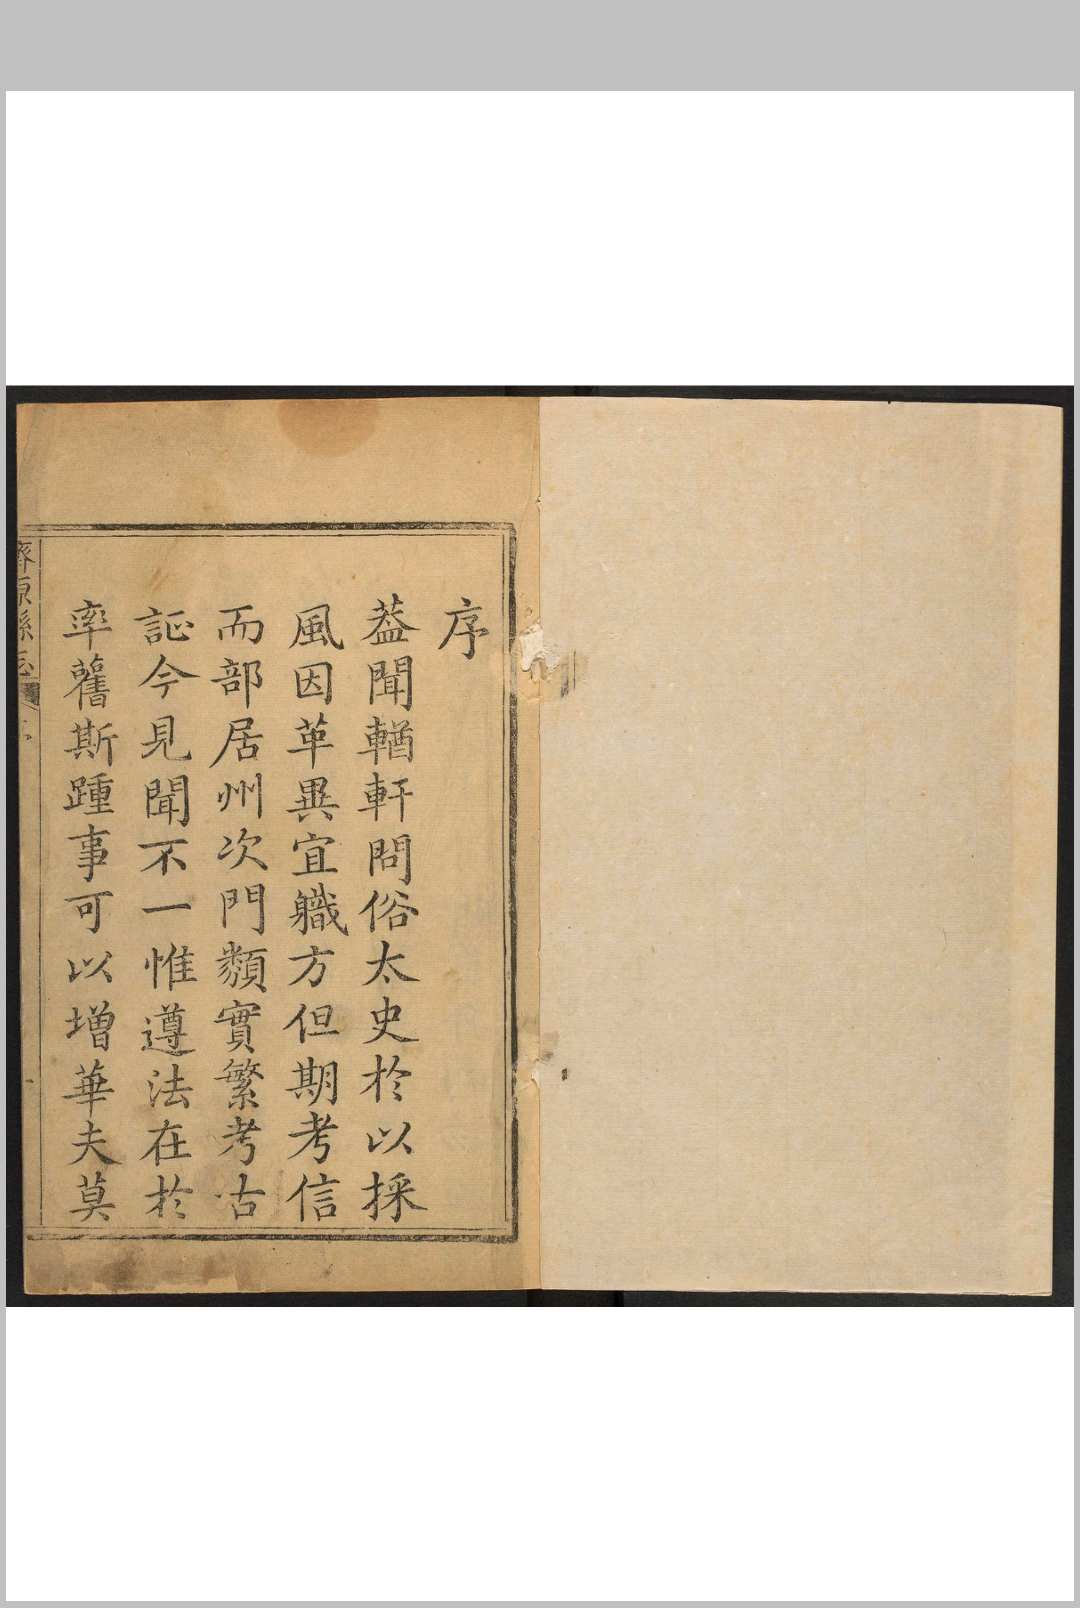 序
葢聞輶軒問俗太史於以採
風因革異宜職方但期考信
而部居州次門類實繁考古
証今見聞不一惟遵法在於
率舊斯踵事可以增華夫莫
濟原縣志